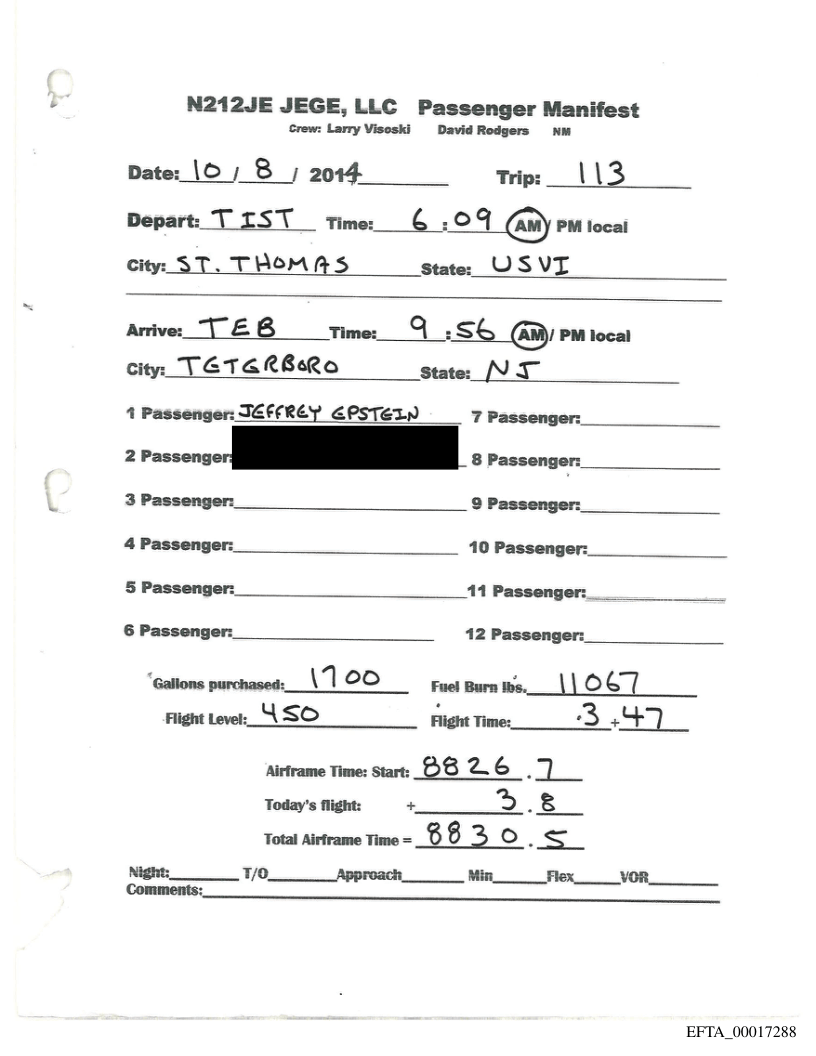 N212JE JEGE, LLC Passenger Manifest
Crew: Larry Visoski David Rodgers NM
Date: 10 / 8 / 2014 Trip: 113
Depart: TIST Time: 6 : 09 AM / PM local
City: ST. THOMAS State: USVI
Arrive: TEB Time: 9 : 56 AM / PM local
City: TETERBORO State: NJ
1 Passenger: JEFFREY EPSTEIN 7 Passenger:
2 Passenger: 8 Passenger:
3 Passenger: 9 Passenger:
4 Passenger: 10 Passenger:
5 Passenger: 11 Passenger:
6 Passenger: 12 Passenger:
Gallons purchased: 1700 Fuel Burn lbs. 11067
Flight Level: 450 Flight Time: 3 + 47
Airframe Time: Start: 8826 . 7
Today's flight: + 3 . 8
Total Airframe Time = 8830 . 5
Night: T/O Approach Min Flex VOR
Comments:
EFTA_00017288